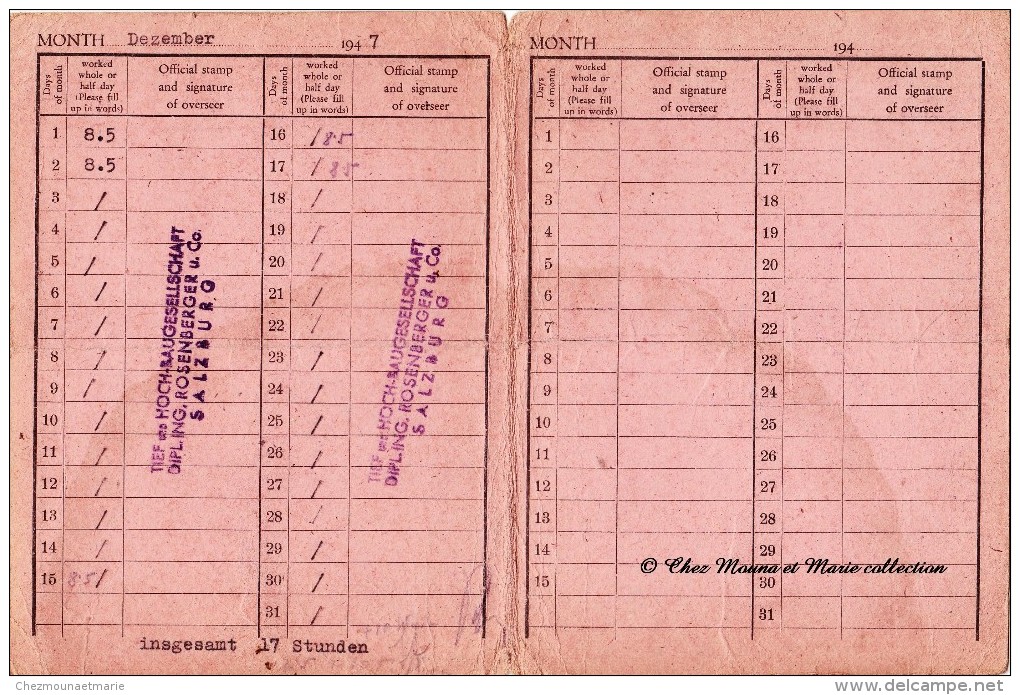 MONTH Dezember 1947
Days of month
worked whole or half day (Please fill up in words)
Official stamp and signature of overseer
Days of month
worked whole or half day (Please fill up in words)
Official stamp and signature of overseer
1 8.5 16 / 8.5
2 8.5 17 / 8.5
3 / 18 /
4 / 19 /
5 / 20 /
6 / 21 /
7 / 22 /
8 / 23 /
9 / 24 /
10 / 25 /
11 / 26 /
12 / 27 /
13 / 28 /
14 / 29 /
15 8.5 / 30 /
31 /
TIEF und HOCH-BAUGESELLSCHAFT
DIPL.ING. ROSENBERGER u. Co.
SALZBURG
TIEF und HOCH-BAUGESELLSCHAFT
DIPL.ING. ROSENBERGER u. Co.
SALZBURG
insgesamt 17 Stunden
MONTH 194
Days of month
worked whole or half day (Please fill up in words)
Official stamp and signature of overseer
Days of month
worked whole or half day (Please fill up in words)
Official stamp and signature of overseer
1 16
2 17
3 18
4 19
5 20
6 21
7 22
8 23
9 24
10 25
11 26
12 27
13 28
14 29
15 30
31
© Chez Mouna et Marie collection
Chezmounaetmarie
delcampe.net